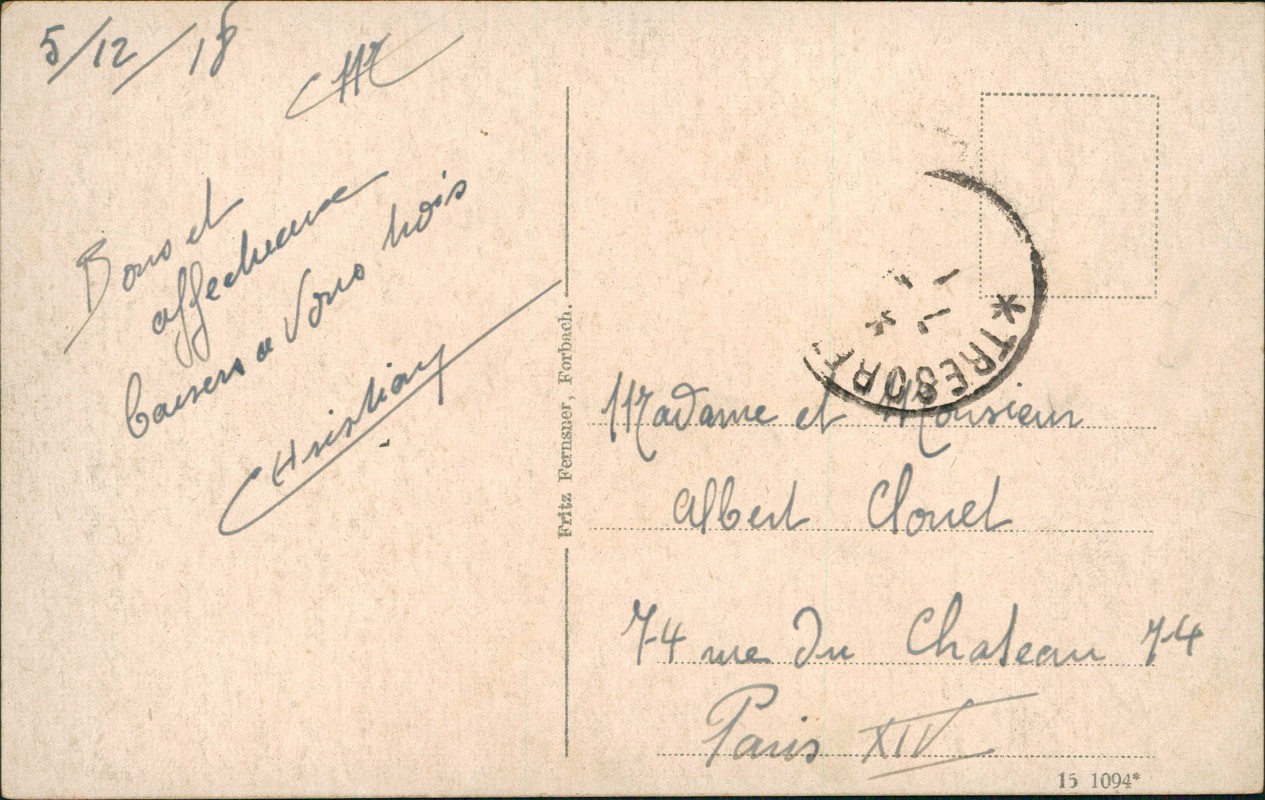 5/12/18
Bons et
affectueux
baisers a Vous trois
CHristian
Fritz Fernsner, Forbach.
*TRESOR
*
Madame et Monsieur
Albert Clouet
74 rue Du Chateau 74
Paris XIV
15 1094*